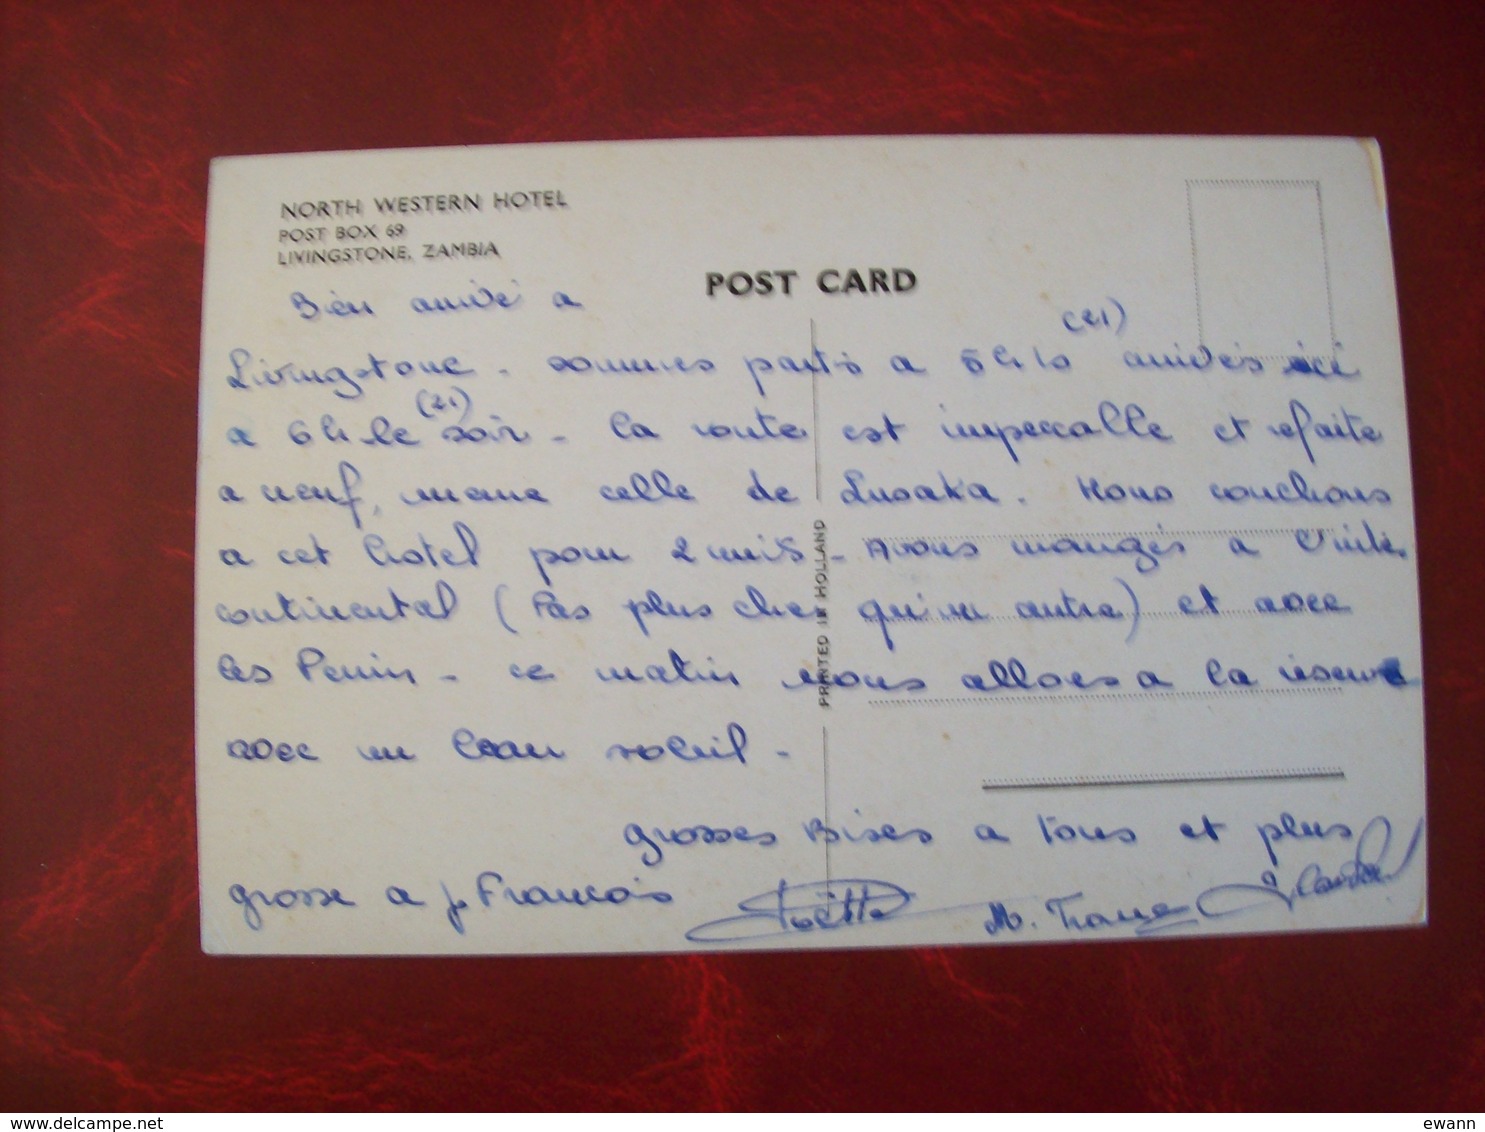 NORTH WESTERN HOTEL
POST BOX 69
LIVINGSTONE, ZAMBIA
POST CARD
Bien arrivé a
(21)
Livingstone - sommes partis a 5h10 arrivés ici
(21)
a 6h le soir - la route est impeccable et refaite
a neuf, meme celle de Lusaka. Nous couchons
a cet hotel pour 2 nuits - Avons mangés a l'inter
continental (Pas plus cher qu'un autre) et avec
les Perrin - ce matin nous allons a la réserve
avec un beau soleil -
grosses Bises a Tous et plus
grosse a J. François
M. France
PRINTED IN HOLLAND
www.delcampe.net
ewann